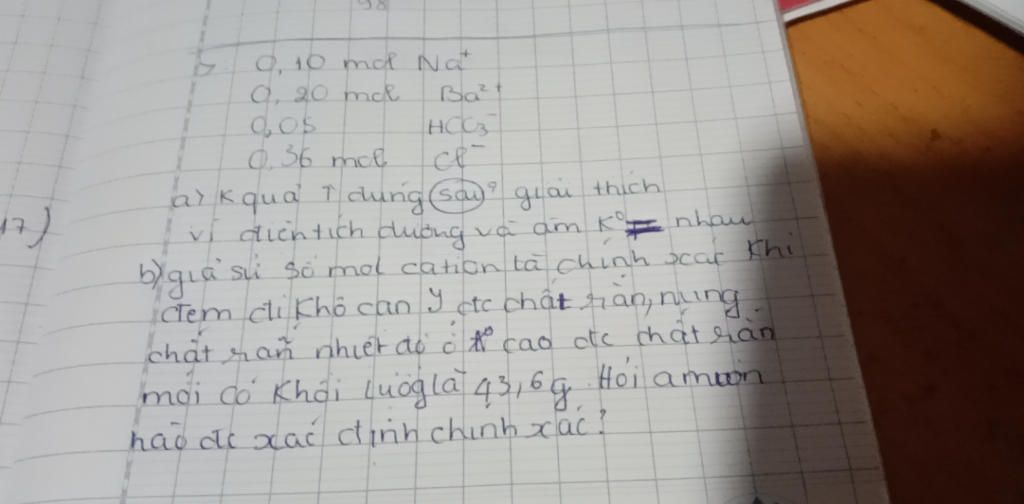 98
=> 0,10 mol Na⁺
0,20 mol Ba²⁺
0,05 HCO₃⁻
0,36 mol Cl⁻
a) K quả T đúng (sai)? giải thích
17) vì điện tích dương và âm K⁰ = nhau
b) giả sử số mol cation là chính xác Khi
đem đi Khô cạn Y đc chất rắn, nung
chất rắn nhiệt độ ở t⁰ cao đc chất rắn
mới có Khối luợg là 43,6g. Hỏi amion
nào đc xác định chính xác?